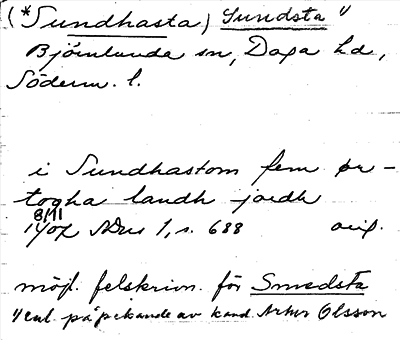 (*Sundhasta) Sundsta "
Björnlunda sn, Daga hd,
Söderm. l.
i Sundhastom fem ør-
togha landh jordh
8/11
1407 SDns 1, s. 688 orig.
möjl. felskrivn. för Smedsta
" enl. påpekande av kand. Artur Olsson